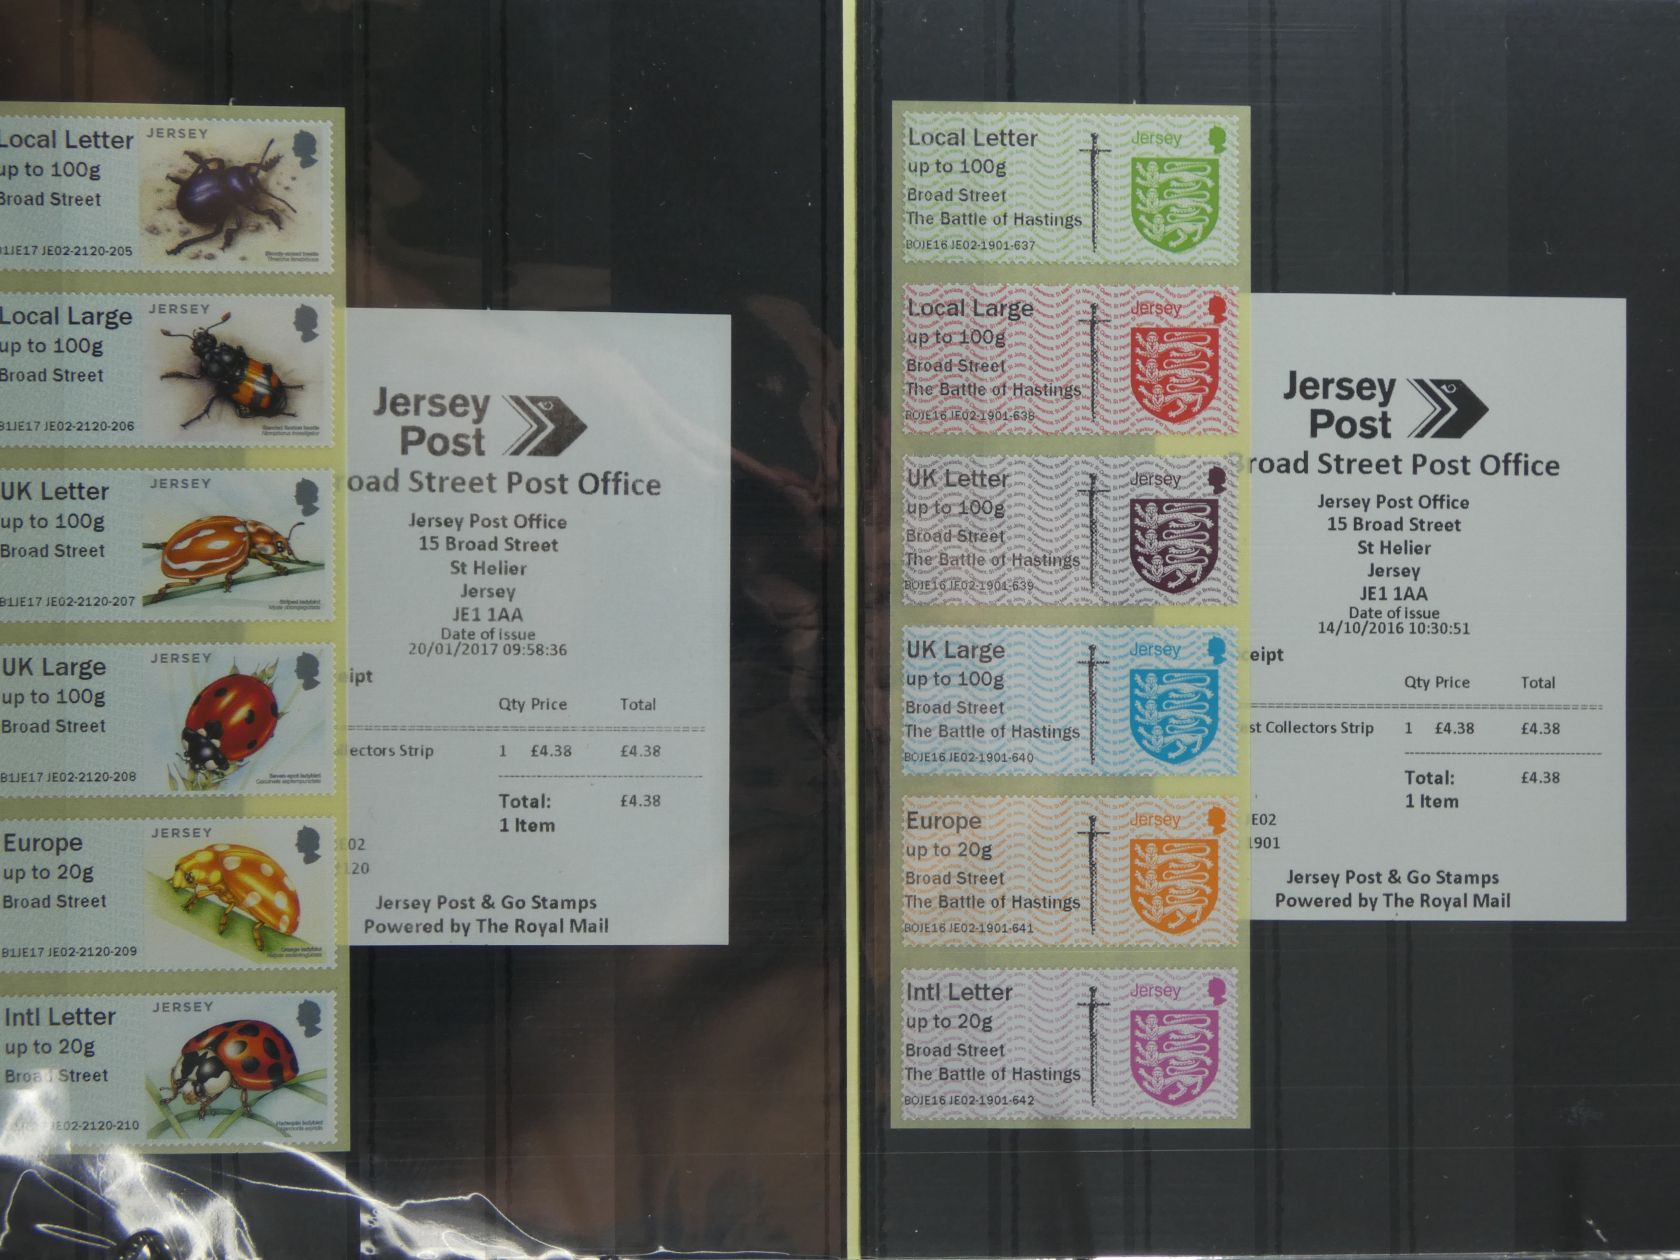 Local Letter
JERSEY
up to 100g
Broad Street
B1JE17 JE02-2120-205
Bloody-nosed beetle
Timarcha tenebricosa
Local Large
JERSEY
up to 100g
Broad Street
B1JE17 JE02-2120-206
Banded Sexton beetle
Nicrophorus investigator
UK Letter
JERSEY
up to 100g
Broad Street
B1JE17 JE02-2120-207
Striped ladybird
UK Large
JERSEY
up to 100g
Broad Street
B1JE17 JE02-2120-208
Seven-spot ladybird
Coccinella septempunctata
Europe
JERSEY
up to 20g
Broad Street
B1JE17 JE02-2120-209
Orange ladybird
Intl Letter
JERSEY
up to 20g
Broad Street
JE02-2120-210
Harlequin ladybird
Harmonia axyridis
Jersey
Post
road Street Post Office
Jersey Post Office
15 Broad Street
St Helier
Jersey
JE1 1AA
Date of issue
20/01/2017 09:58:36
eipt
Qty Price Total
llectors Strip 1 £4.38 £4.38
Total: £4.38
1 Item
E02
120
Jersey Post & Go Stamps
Powered by The Royal Mail
Local Letter
Jersey
up to 100g
Broad Street
The Battle of Hastings
B0JE16 JE02-1901-637
Local Large
Jersey
up to 100g
Broad Street
The Battle of Hastings
B0JE16 JE02-1901-638
UK Letter
Jersey
up to 100g
Broad Street
The Battle of Hastings
B0JE16 JE02-1901-639
UK Large
Jersey
up to 100g
Broad Street
The Battle of Hastings
B0JE16 JE02-1901-640
Europe
Jersey
up to 20g
Broad Street
The Battle of Hastings
B0JE16 JE02-1901-641
Intl Letter
Jersey
up to 20g
Broad Street
The Battle of Hastings
B0JE16 JE02-1901-642
Jersey
Post
Broad Street Post Office
Jersey Post Office
15 Broad Street
St Helier
Jersey
JE1 1AA
Date of issue
14/10/2016 10:30:51
ceipt
Qty Price Total
est Collectors Strip 1 £4.38 £4.38
Total: £4.38
1 Item
JE02
1901
Jersey Post & Go Stamps
Powered by The Royal Mail